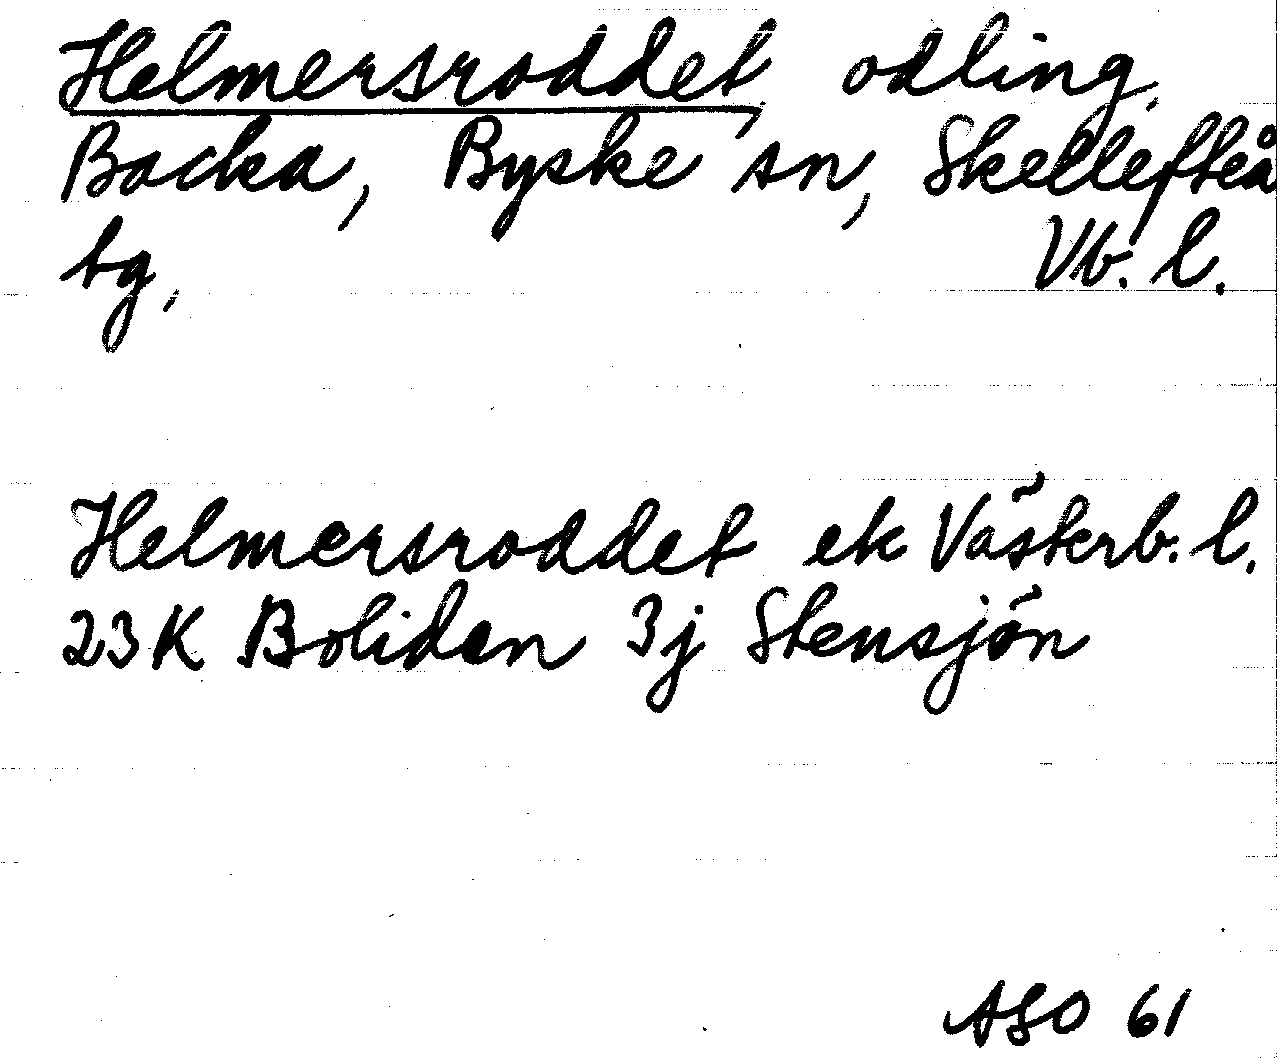 Helmersroddet, odling,
Backa, Byske sn, Skellefteå
tg, Vb. l.
Helmersroddet ek Västerb. l.
23K Boliden 3j Stensjön
ASO 61